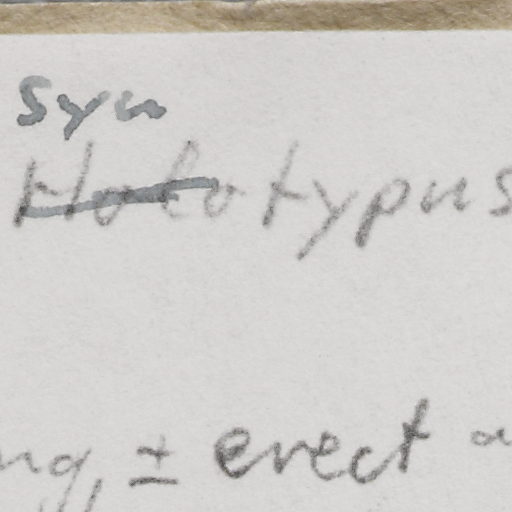 Syn
Holotypus
± erect